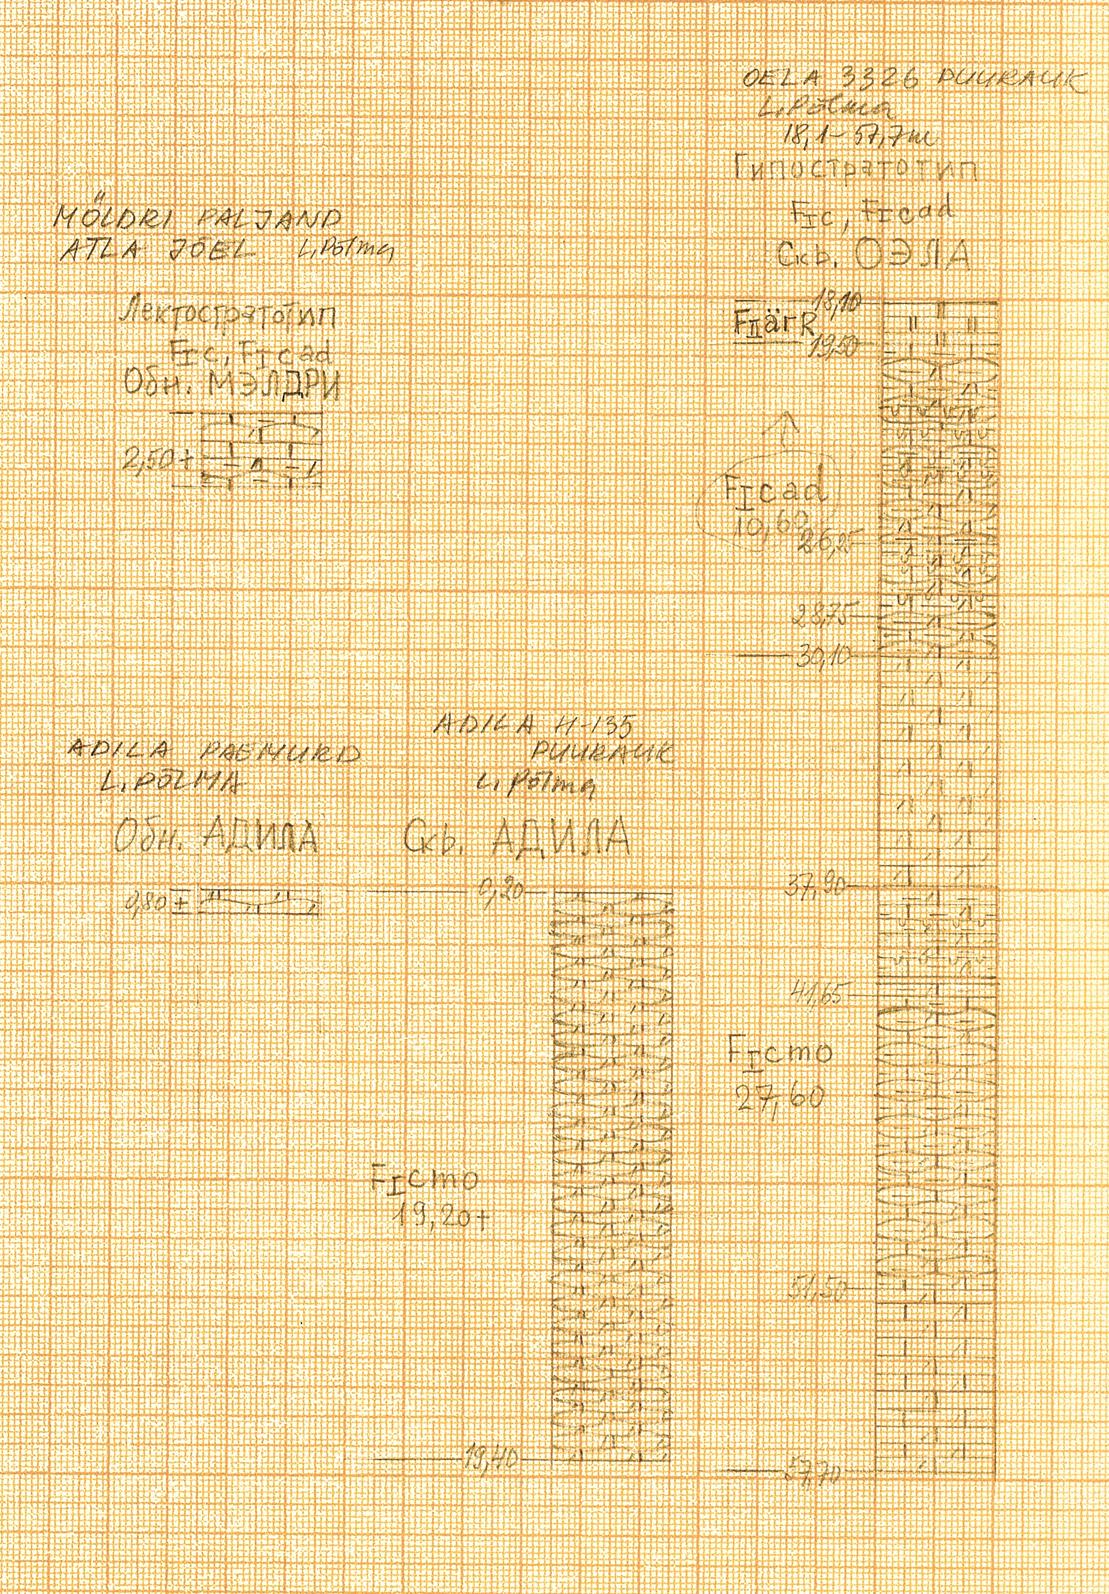 OELA 3326 PUURAUK
L. Põlma
18,1-57,7m
Гипостратотип
FIc, FIcad
Скв. ОЭЛА
MÖLDRI PALJAND
ATLA JÕEL L. Põlma
Лектостратотип
FIc, FIcad
Обн. МЭЛДРИ
2,50+
18,10
FIIärR
19,50
FIcad
10,60
26,25
28,75
30,10
ADILA PAEMURD
L. PÕLMA
Обн. АДИЛА
0,80±
ADILA H-135
PUURAUK
L. Põlma
Скв. АДИЛА
0,20
FIcmo
19,20+
19,40
37,90
41,65
FIcmo
27,60
51,50
57,70